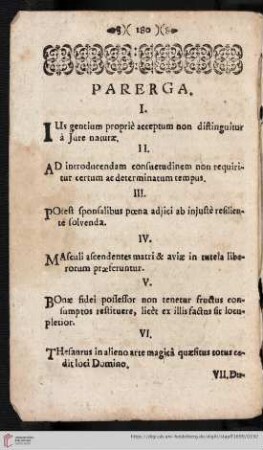 180
PARERGA.
I.
IUs gentium propriè acceptum non distinguitur
à Jure naturæ.
II.
AD introducendam consuetudinem non requiri-
tur certum ac determinatum tempus.
III.
POtest sponsalibus pœna adjici ab injustè resilien-
te solvenda.
IV.
MAsculi ascendentes matri & aviæ in tutela libe-
rorum præferuntur.
V.
BOnæ fidei possessor non tenetur fructus con-
sumptos restituere, licèt ex illis factus sit locu-
pletior.
VI.
THesaurus in alieno arte magicâ quæsitus totus ce-
dit loci Domino.
VII. Du-